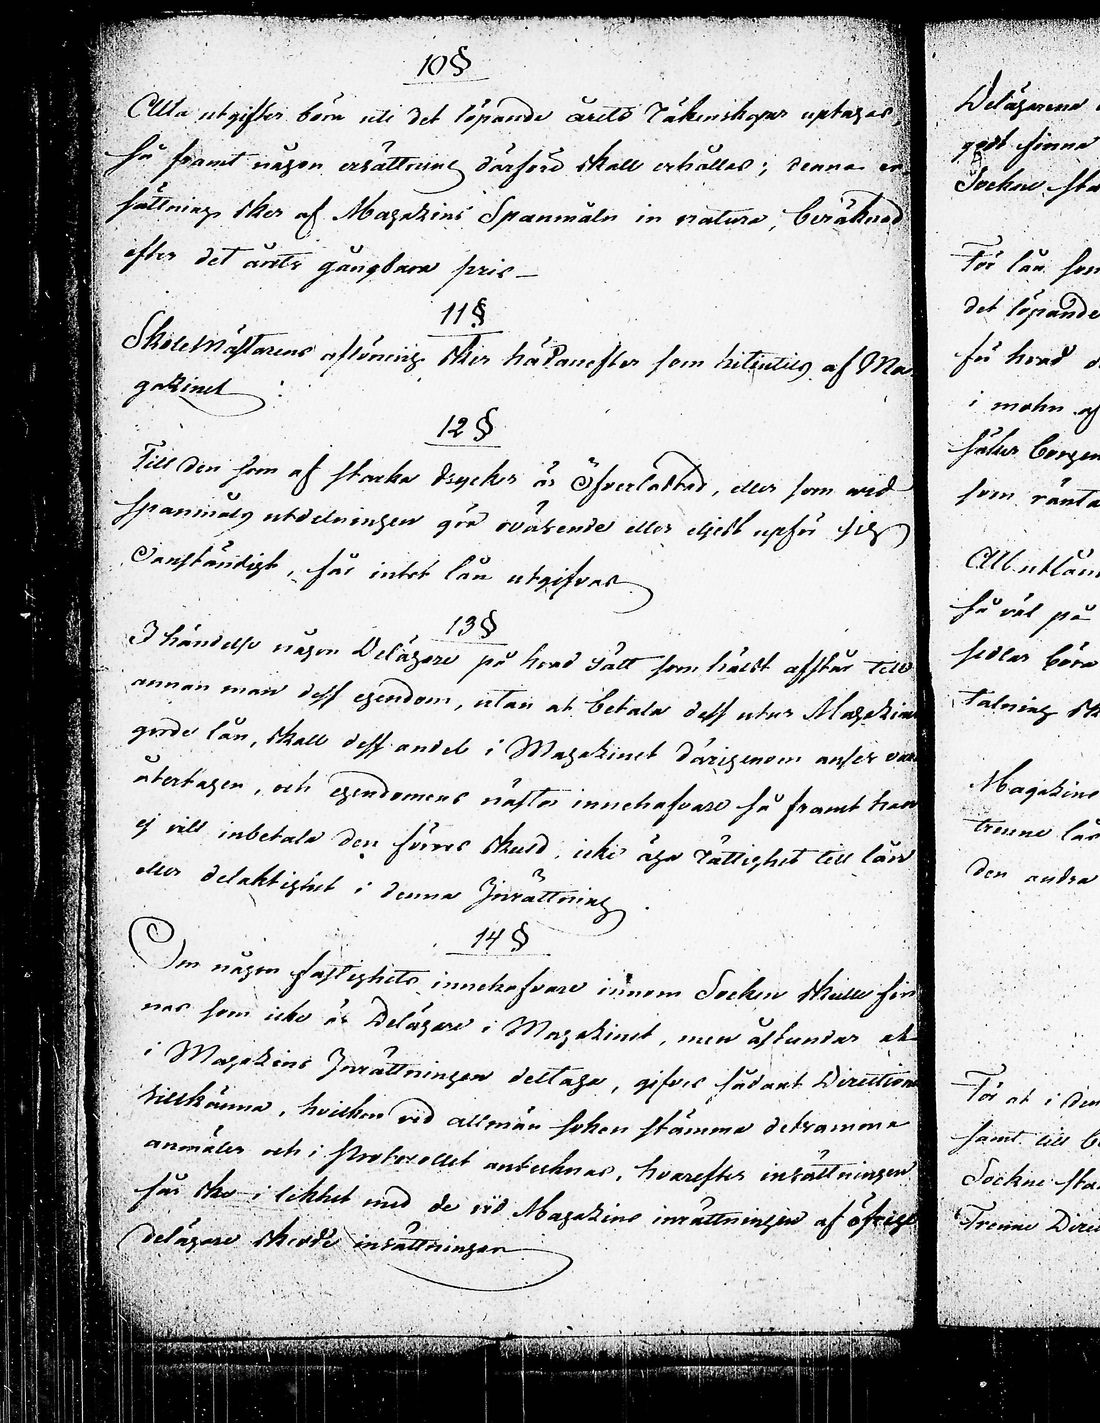 10 §
Alla utgifter böra uti det löpande årets Räkenskaper uptagas,
så framt någon ersättning därföre skall erhållas; denna er-
sättning sker af Magazins Spanmåln in natura, beräknad
efter det årets gångbara pris
11 §
Skolemästarens aflöning sker hädanefter som hitintils af Ma-
gazinet
12 §
Till den som af starka drycker är Öfverlastad, eller som wid
spanmåls utdelningen gör oväsende eller eljest upför sig
Oanständigt, får intet lån utgifvas
13 §
I händelse någon Delägare på hvad sätt som hälst afstår till
annan man dess egendom, utan at betala dess utur Magazinet
gorde lån, skall dess andel i Magazinet därigenom anses vara
återtagen, och egendomens nästa innehafvare så framt han
ej vill inbetala den förres skuld, icke äga rättighet till lån
eller delaktighet i denna Inrättning
14 §
Om någon fastighets innehafvare innom Socken skulle fin-
nas som icke är Delägare i Magazinet, men åstundar at
i Magazins Inrättningen deltaga, gifves sådant Directionen
tillkänna, hvilken vid allmän soken stämma detsamma
anmäler och i Protocollet antecknas, hvarefter insättningen
får ske i likhet med de vid Magazins inrättningen af öfrige
delägare skedde insättningar
Delägarena
godt finna
Sockne sta
För lån som
det löpande
få hvad
i mohn af
säker borgen
som ränta
All utlån
så väl på
sedlar böra
talning sk
Magazins
trenne lås
den andra
För at i den
samt till
Sockne sta
Trenne Dire